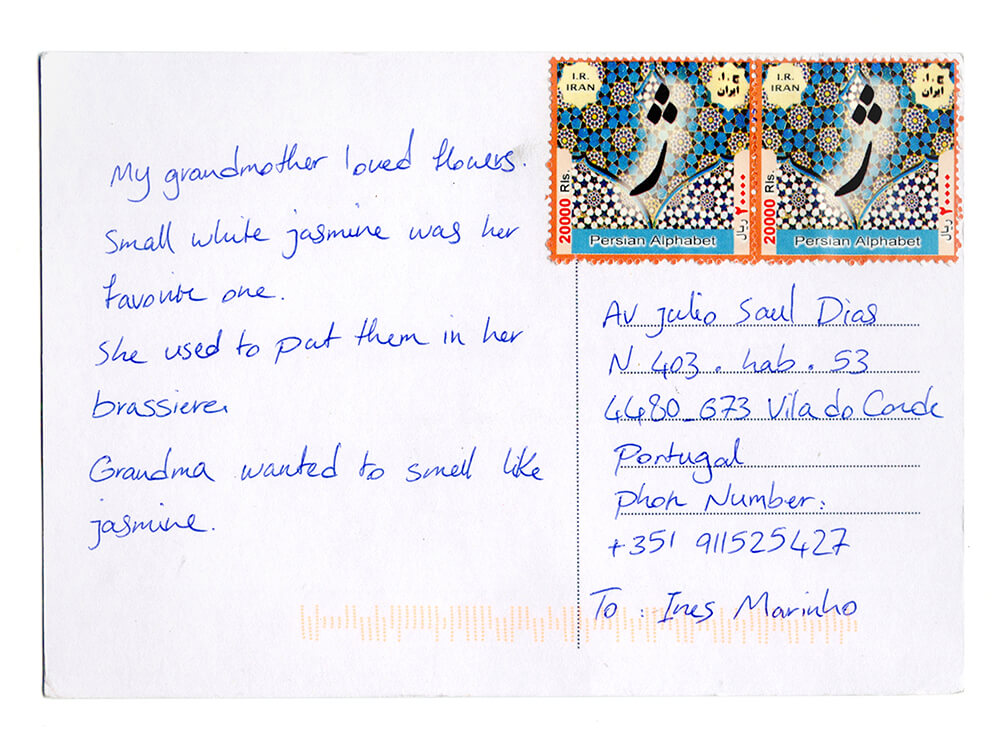 My grandmother loved flowers.
Small white jasmine was her
favorite one.
She used to put them in her
brassiere.
Grandma wanted to smell like
jasmine.
I.R.
IRAN
ج.ا.
ایران
ژ
ر
20000 Rls.
۲۰۰۰۰ ریال
Persian Alphabet
I.R.
IRAN
ج.ا.
ایران
ژ
ر
20000 Rls.
۲۰۰۰۰ ریال
Persian Alphabet
Av julio Saul Dias
N 403 . hab . 53
4480_673 Vila do Conde
Portugal
phon Number:
+351 911525427
To : Ines Marinho